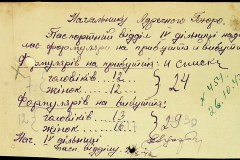 Начальнику Адресного Бюро.
Паспортний відділ IV дільниці
формулярів на прибувших и
Формулярів на прибувших: и списки
чоловіків ... 12 ...
жінок ...... 12 ...
24
Формулярів на вибувших:
чоловіків ..... 13
жінок ...... 16
29
Нач. IV дільниці
пасп. відділу